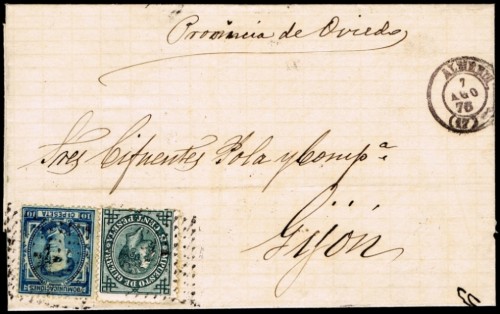 Provincia de Oviedo
ALMERIA
7
AGO
76
(17)
Sres Cifuentes Pola y Comp.ª
Gijón
COMUNICACIONES
10 CS PESETA 10
IMPUESTO DE GUERRA
5 CENT. PESETA